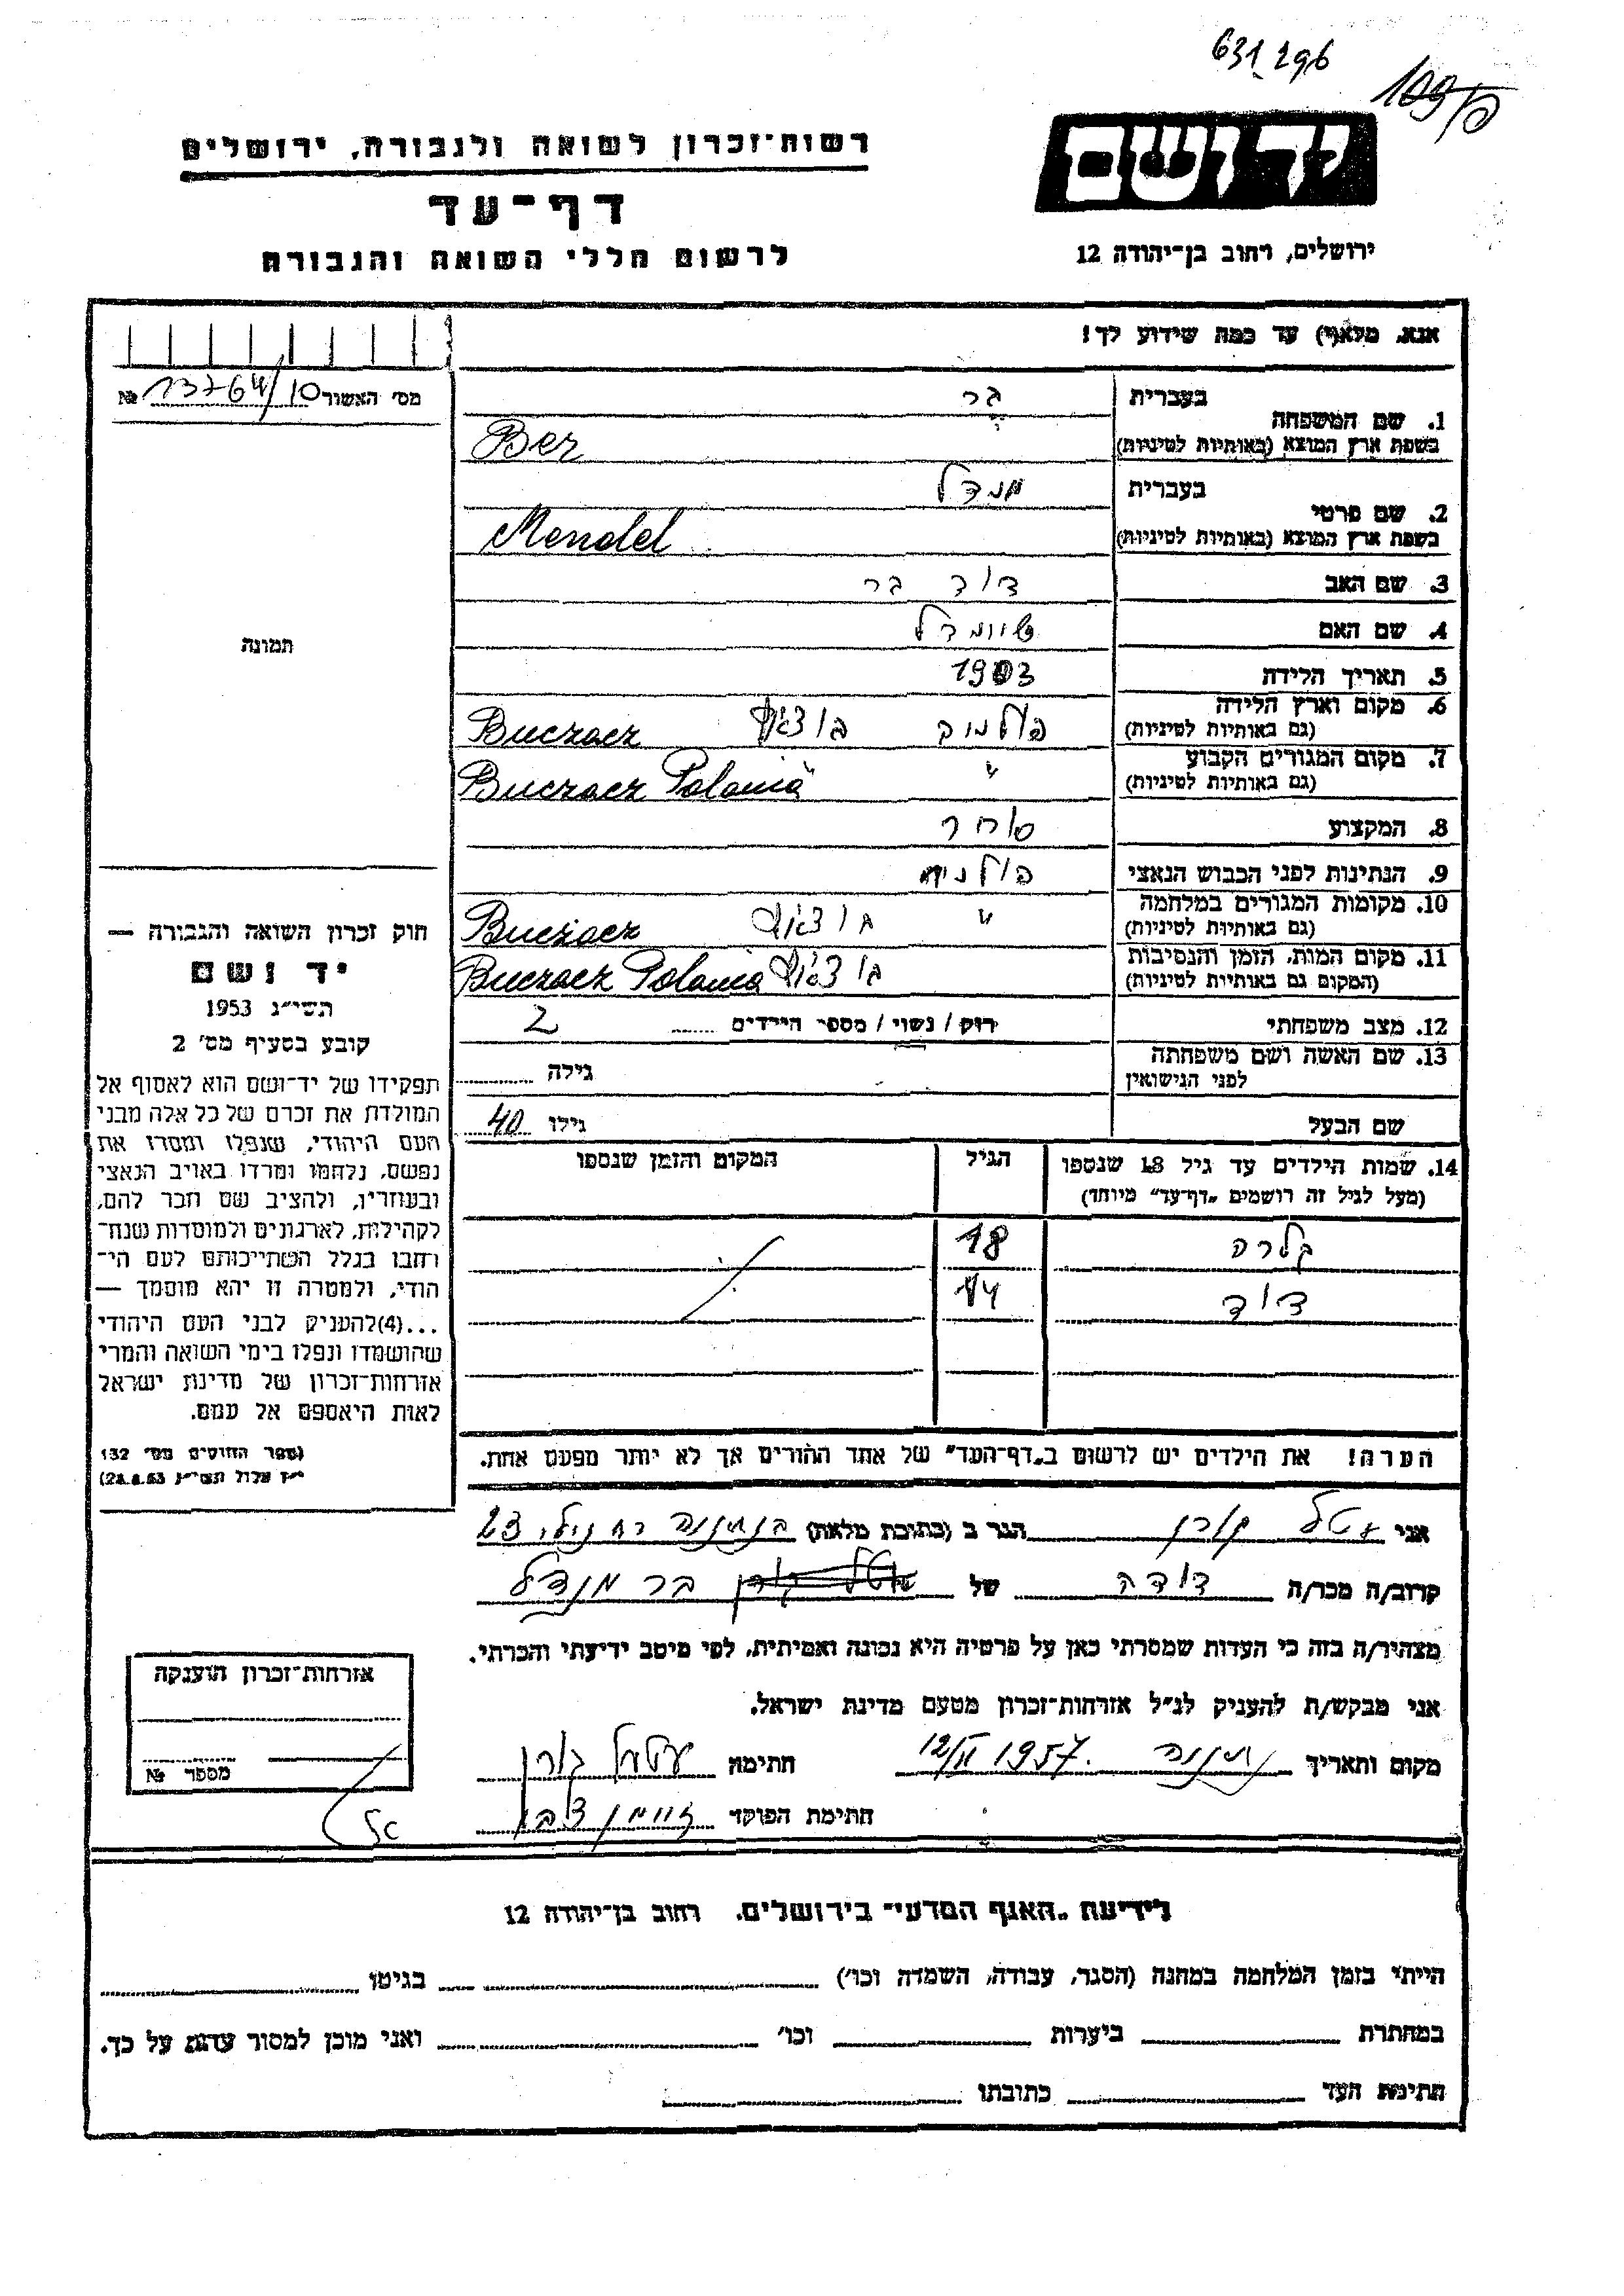 631296
109/פ
יד ושם
רשות־זכרון לשואה ולגבורה, ירושלים
דף־עד
לרשום חללי השואה והגבורה
ירושלים, רחוב בן־יהודה 12
אנא, מלא(י) עד כמה שידוע לך!
מס׳ האשור 13764/10 №
בעברית בר
1. שם המשפחה
בשפת ארץ המוצא (באותיות לטיניות) Ber
בעברית מנדל
2. שם פרטי
בשפת ארץ המוצא (באותיות לטיניות) Mendel
3. שם האב דוד בר
4. שם האם
5. תאריך הלידה 1903
6. מקום וארץ הלידה
(גם באותיות לטיניות) בוצאץ Buczacz
7. מקום המגורים הקבוע
(גם באותיות לטיניות) " Buczacz Polania
8. המקצוע סוחר
9. הנתינות לפני הכבוש הנאצי פולנית
10. מקומות המגורים במלחמה
(גם באותיות לטיניות) " בוצאץ Buczacz
11. מקום המות, הזמן והנסיבות
(המקום גם באותיות לטיניות) בוצאץ Buczacz Polania
12. מצב משפחתי רוק / נשוי / מספר הילדים 2
13. שם האשה ושם משפחתה
לפני הנישואין גילה
שם הבעל גילו 40
14. שמות הילדים עד גיל 18 שנספו
(מעל לגיל זה רושמים „דף־עד” מיוחד)
הגיל
המקום והזמן שנספו
קלרה 18
דוד 14
הערה! את הילדים יש לרשום ב„דף־העד” של אחד ההורים אך לא יותר מפעם אחת.
תמונה
חוק זכרון השואה והגבורה —
יד ושם
תשי״ג 1953
קובע בסעיף מס׳ 2
תפקידו של יד־ושם הוא לאסוף אל
המולדת את זכרם של כל אלה מבני
העם היהודי, שנפלו ומסרו את
נפשם, נלחמו ומרדו באויב הנאצי
ובעוזריו, ולהציב שם וזכר להם,
לקהילות, לארגונים ולמוסדות שנח־
רבו בגלל השתייכותם לעם הי־
הודי, ולמטרה זו יהא מוסמך —
...(4)להעניק לבני העם היהודי
שהושמדו ונפלו בימי השואה והמרי
אזרחות־זכרון של מדינת ישראל
לאות היאספם אל עמם.
(ספר החוקים מס׳ 132
י״ז אלול תשי״ג 28.8.53)
אני אטל קורן הגר ב (כתובת מלאה) בנתניה רח 23
קרוב/ה מכר/ה דודה של בר מנדל
מצהיר/ה בזה כי העדות שמסרתי כאן על פרטיה היא נכונה ואמיתית, לפי מיטב ידיעתי והכרתי.
אני מבקש/ת להעניק לנ״ל אזרחות־זכרון מטעם מדינת ישראל.
מקום ותאריך נתניה 12/II 1957. חתימה
חתימת הפוקד
אזרחות־זכרון הוענקה
מספר №
לידיעת „האגף המדעי” בירושלים, רחוב בן־יהודה 12
הייתי בזמן המלחמה במחנה (הסגר, עבודה, השמדה וכו׳) בגיטו
במחתרת ביערות וכו׳ ואני מוכן למסור עדות על כך.
חתימת העד כתובתו